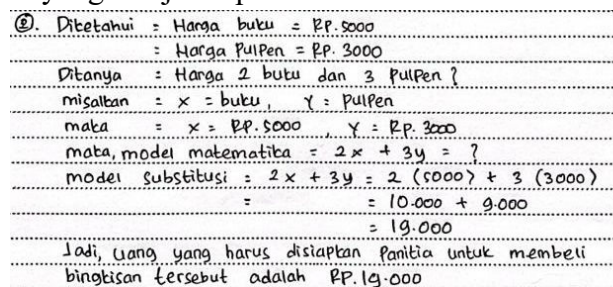 ②. Diketahui : Harga buku = RP.5000
: Harga Pulpen = RP. 3000
Ditanya : Harga 2 buku dan 3 Pulpen ?
misalkan : x = buku, Y : Pulpen
maka : x = RP.5000 , Y = RP. 3000
maka, model matematika = 2x + 3y = ?
model Substitusi : 2x + 3y = 2 (5000) + 3 (3000)
= = 10.000 + 9.000
= 19.000
Jadi, uang yang harus disiapkan Panitia untuk membeli
bingkisan tersebut adalah RP.19.000